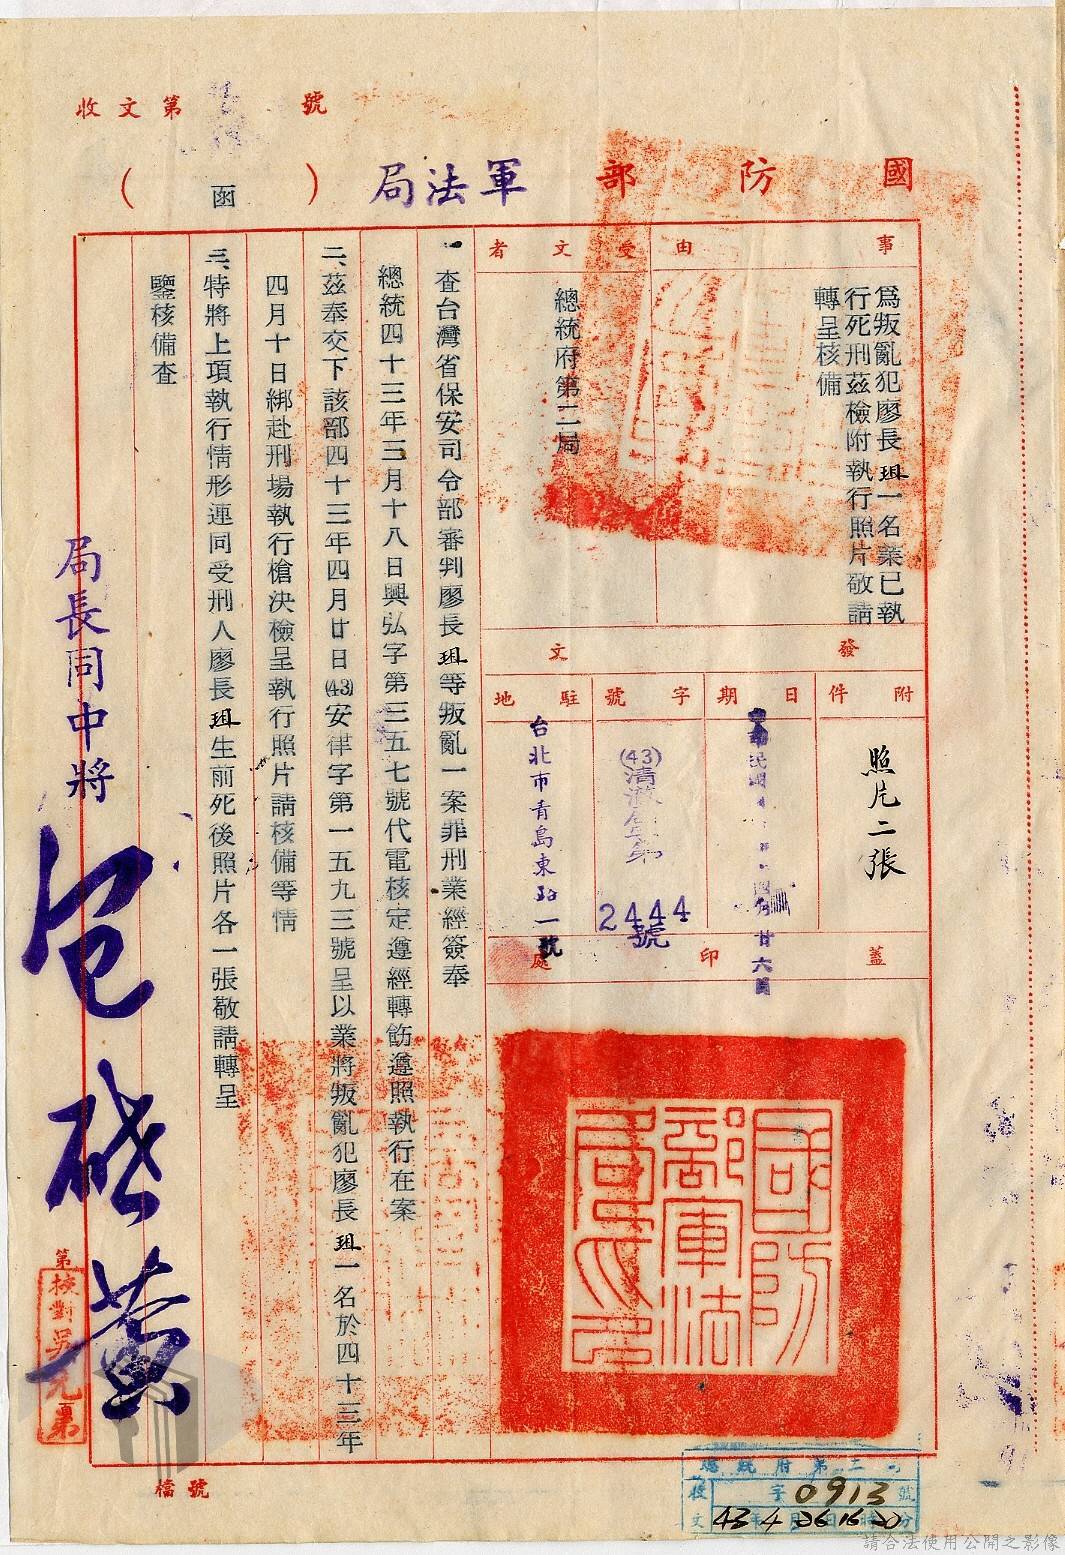 收文第 號
國防部軍法局
(函)
事由
為叛亂犯廖長琩一名業已執
行死刑茲檢附執行照片敬請
轉呈核備
受文者
總統府第二局
發文
附件
照片二張
日期
廿六
字號
(43)清澈 字第
2444
號
駐地
台北市青島東路一號
蓋印處
國防部軍法局印
一查台灣省保安司令部審判廖長琩等叛亂一案罪刑業經簽奉
總統四十三年三月十八日興弘字第三五七號代電核定遵經轉飭遵照執行在案
二、茲奉交下該部四十三年四月廿日(43)安律字第一五九三號呈以業將叛亂犯廖長琩一名於四十三年
四月十日綁赴刑場執行槍決檢呈執行照片請核備等情
三、特將上項執行情形連同受刑人廖長琩生前死後照片各一張敬請轉呈
鑒核備查
局長同中將
包啟黃
第
校對吳
檔號
總統府第二局
收文 字0913號
43年4月26日16時20分
請合法使用公開之影像